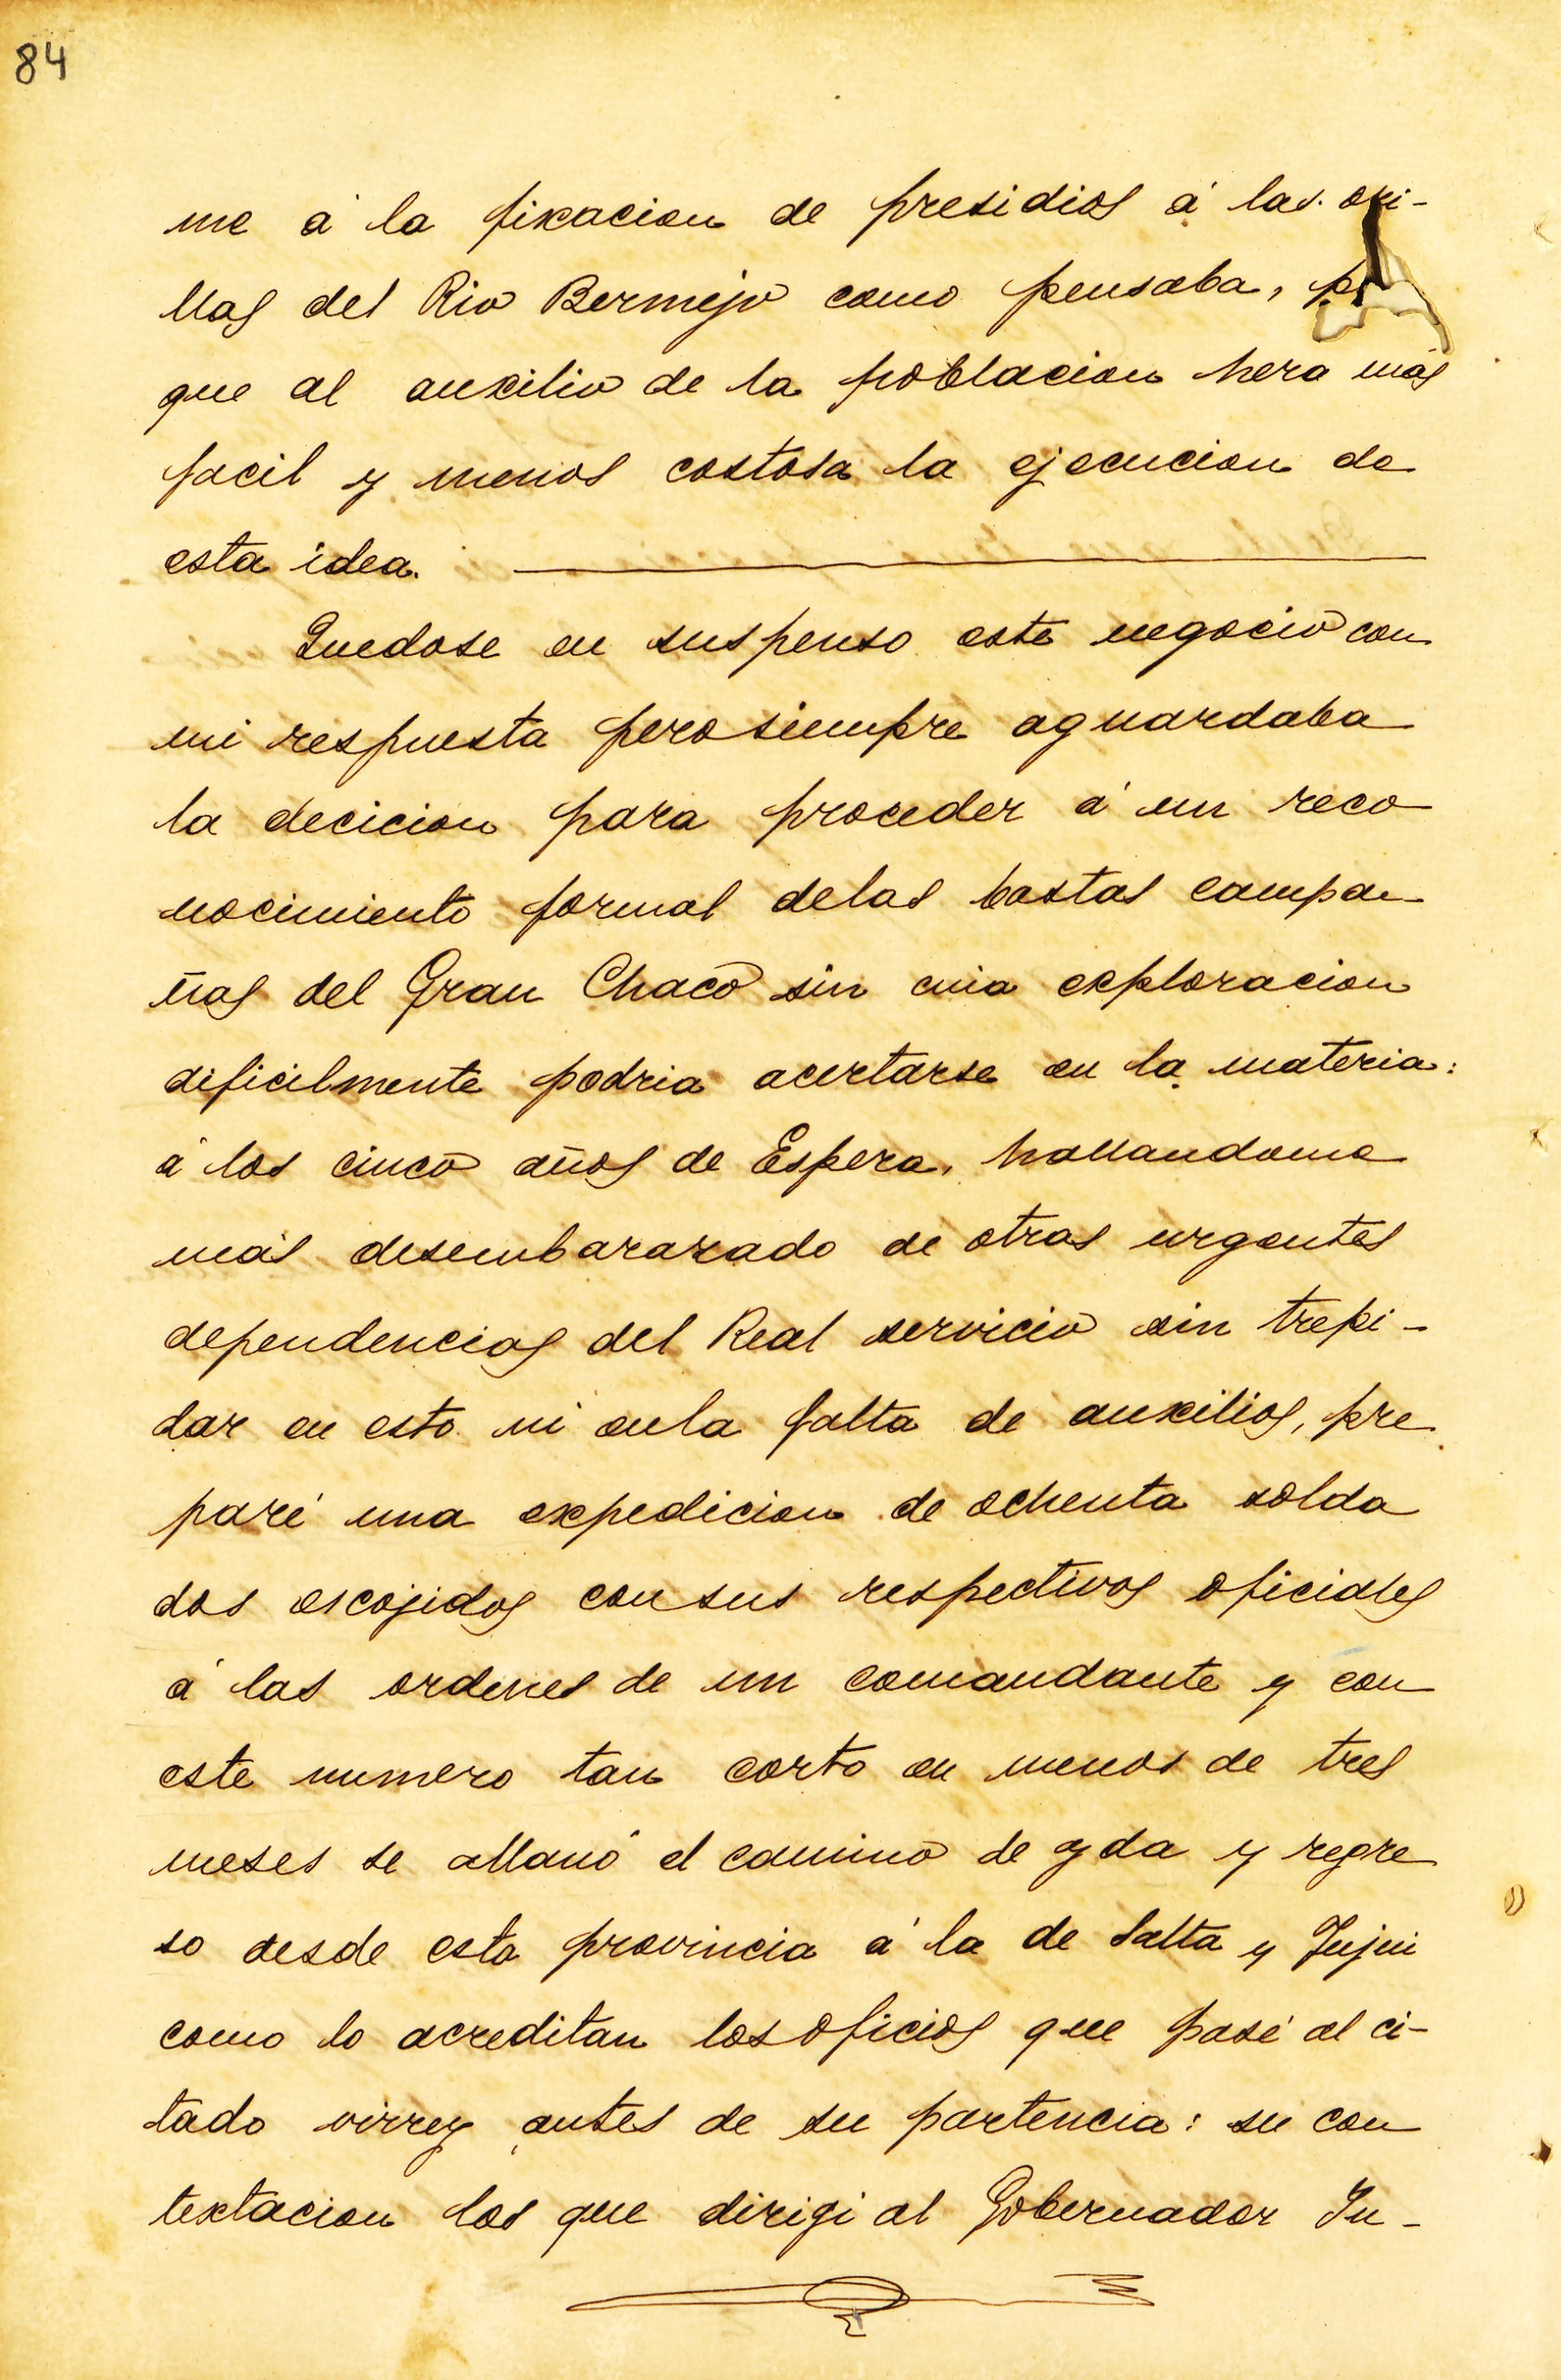 84
me á la fixacion de presidios á las ori-
llas del Rio Bermejo como pensaba,
que al auxilio de la poblacion hera más
facil y menos costosa la ejecucion de
esta idea.
Quedose en suspenso este negocio con
mi respuesta pero siempre aguardaba
la decicion para proceder á un reco
nocimiento formal delas bastas campa-
ñas del Gran Chaco sin cuia exploracion
dificilmente podria acertarse en la materia:
á los cinco años de Espera, hallandome
más desembarazado de otras urgentes
dependencias del Real servicio sin trepi-
dar en esto ni enla falta de auxilios, pre
paré una expedicion de ochenta solda
dos escojidos con sus respectivos oficiales
á las ordenes de un comandante y con
este numero tan corto en menos de tres
meses se allanó el camino de yda y regre
so desde esta provincia á la de Salta y Jujui
como lo acreditan los oficios que pasé al ci-
tado virrey antes de su partencia: su con
textacion los que dirigi al Gobernador In-